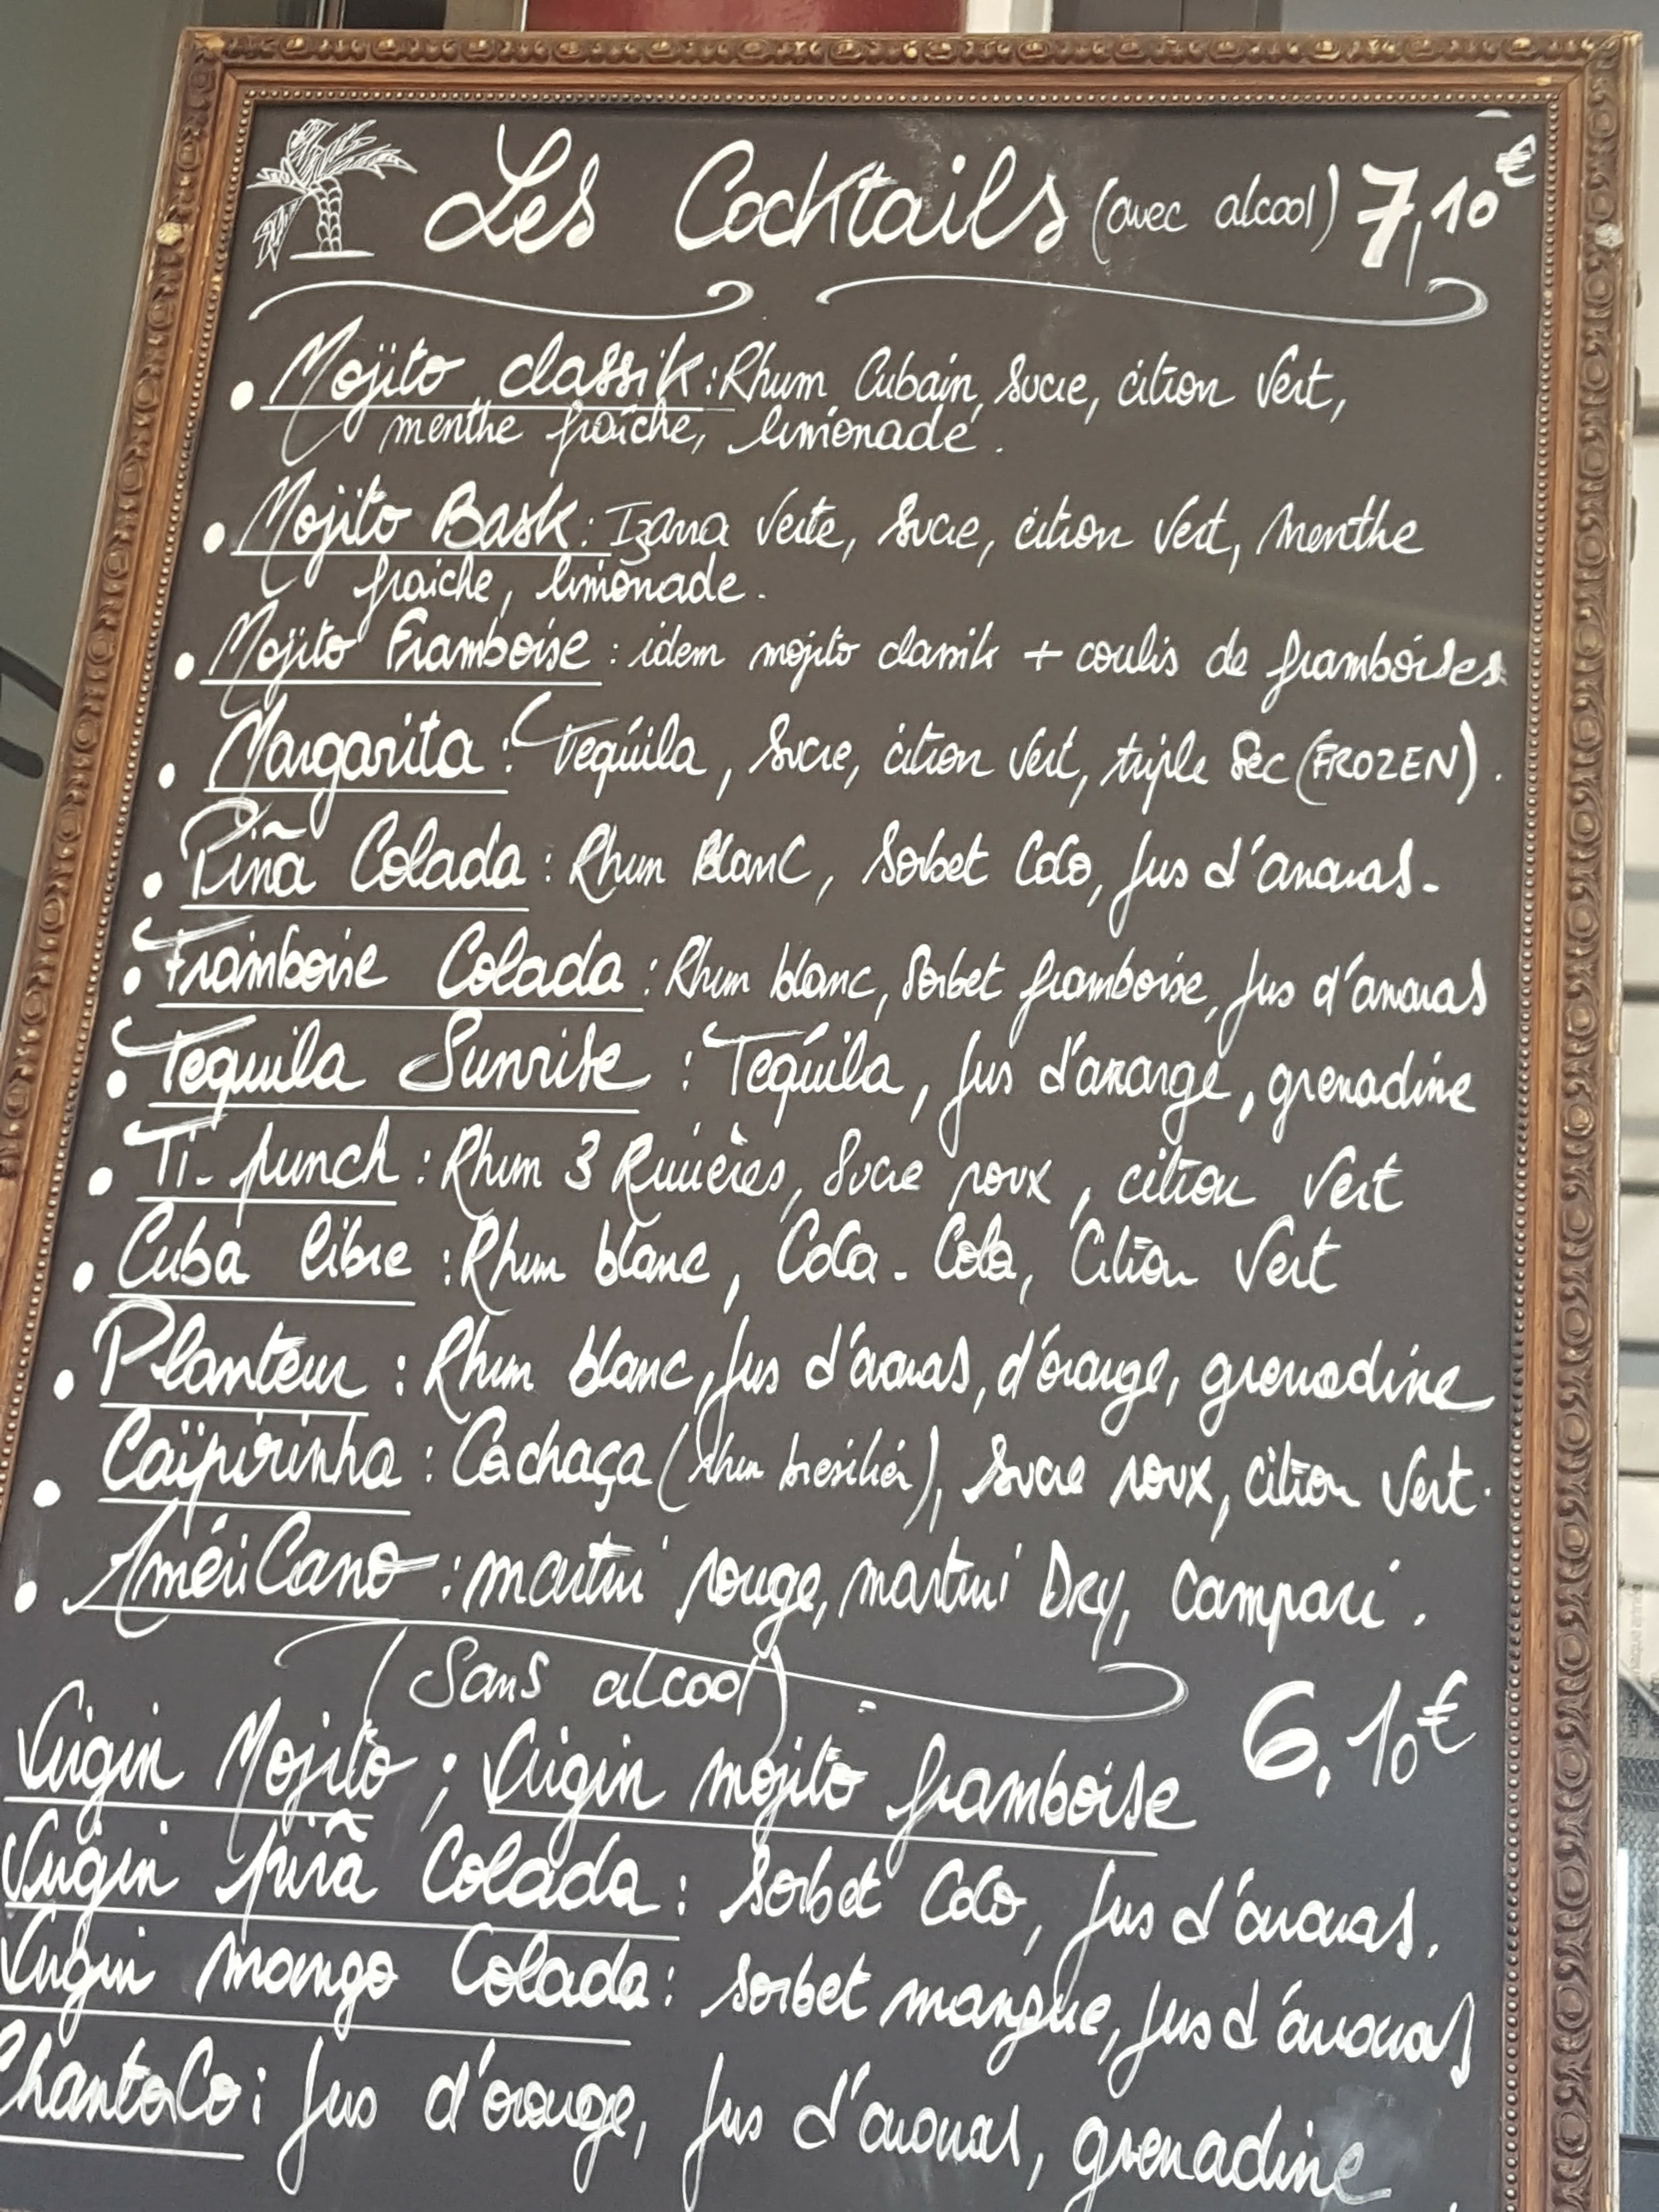 Les Cocktails (avec alcool) 7,10€
• Mojito classik : Rhum Cubain, Sucre, citron Vert,
menthe fraîche, limonade.
• Mojito Bask : Izarra Verte, Sucre, citron Vert, Menthe
fraiche, limonade.
• Mojito Framboise : idem mojito classik + coulis de framboises
• Margarita : Tequila, Sucre, citron Vert, triple Sec (FROZEN).
• Piña Colada : Rhum Blanc, Sorbet Coco, Jus d'ananas.
• Framboise Colada : Rhum blanc, Sorbet framboise, Jus d'ananas
• Tequila Sunrise : Tequila, Jus d'orange, grenadine
• Ti-punch : Rhum 3 Rivières, Sucre roux, citron Vert
• Cuba libre : Rhum blanc, Coca-Cola, Citron Vert
• Planteur : Rhum blanc, Jus d'ananas, d'orange, grenadine
• Caïpirinha : Cachaça (rhum bresilien), Sucre roux, citron Vert.
• AmériCano : martini rouge, martini Dry, Campari.
(Sans alcool) 6,10€
Virgin Mojito ; Virgin mojito framboise
Virgin piña Colada : Sorbet Coco, Jus d'ananas.
Virgin mango Colada : Sorbet mangue, Jus d'ananas
ChantaCo : Jus d'orange, Jus d'ananas, grenadine